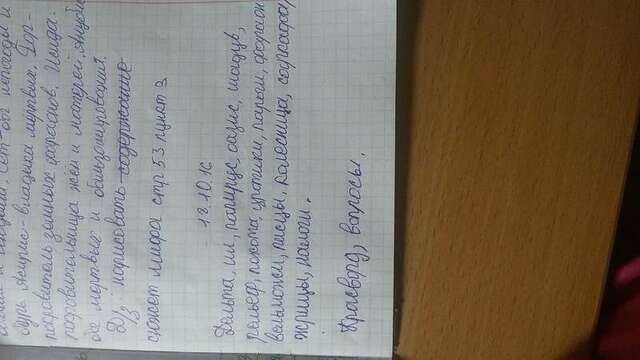 Сет-бог непогоды и
бурь Асирис-владыка мёртвых. Гор-
покровитель земных фараонов. Исида-
покровительница жён и матерей. Анубис
бог мёртвых и бальзамирования.
Д/з: нарисовать содержание
сюжет мифа стр 53 пункт 3
18.10.16
Дельта, ил, папирус, оазис, шадуф,
рельеф, пехота, цратики, фараон
вельможи, писцы, колесница, саркафаг,
жрицы, налоги.
Красворд, вопросы.